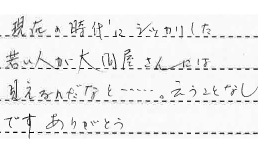 現在の時代にシッカリした
若い人が大問屋さんには
見えるんだなと……。云うことなし
です ありがとう